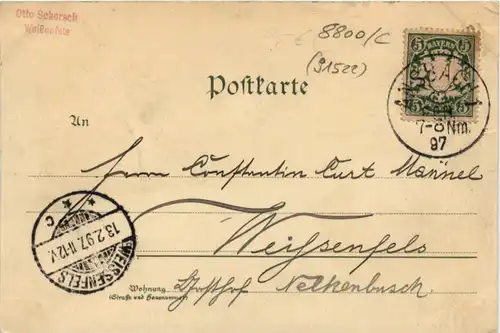 Otto Sekersoft
Weißenfels
8800/C
(91522)
5 BAYERN 5
ANSBACH 1
7-8 Nm.
97
Postkarte
An
Herrn Constantin Curt Männel
Weißenfels
WEISSENFELS
13.2.97. 11-12 V.
* C *
Wohnung
(Straße und Hausnummer)
Gasthof Nelkenbusch.